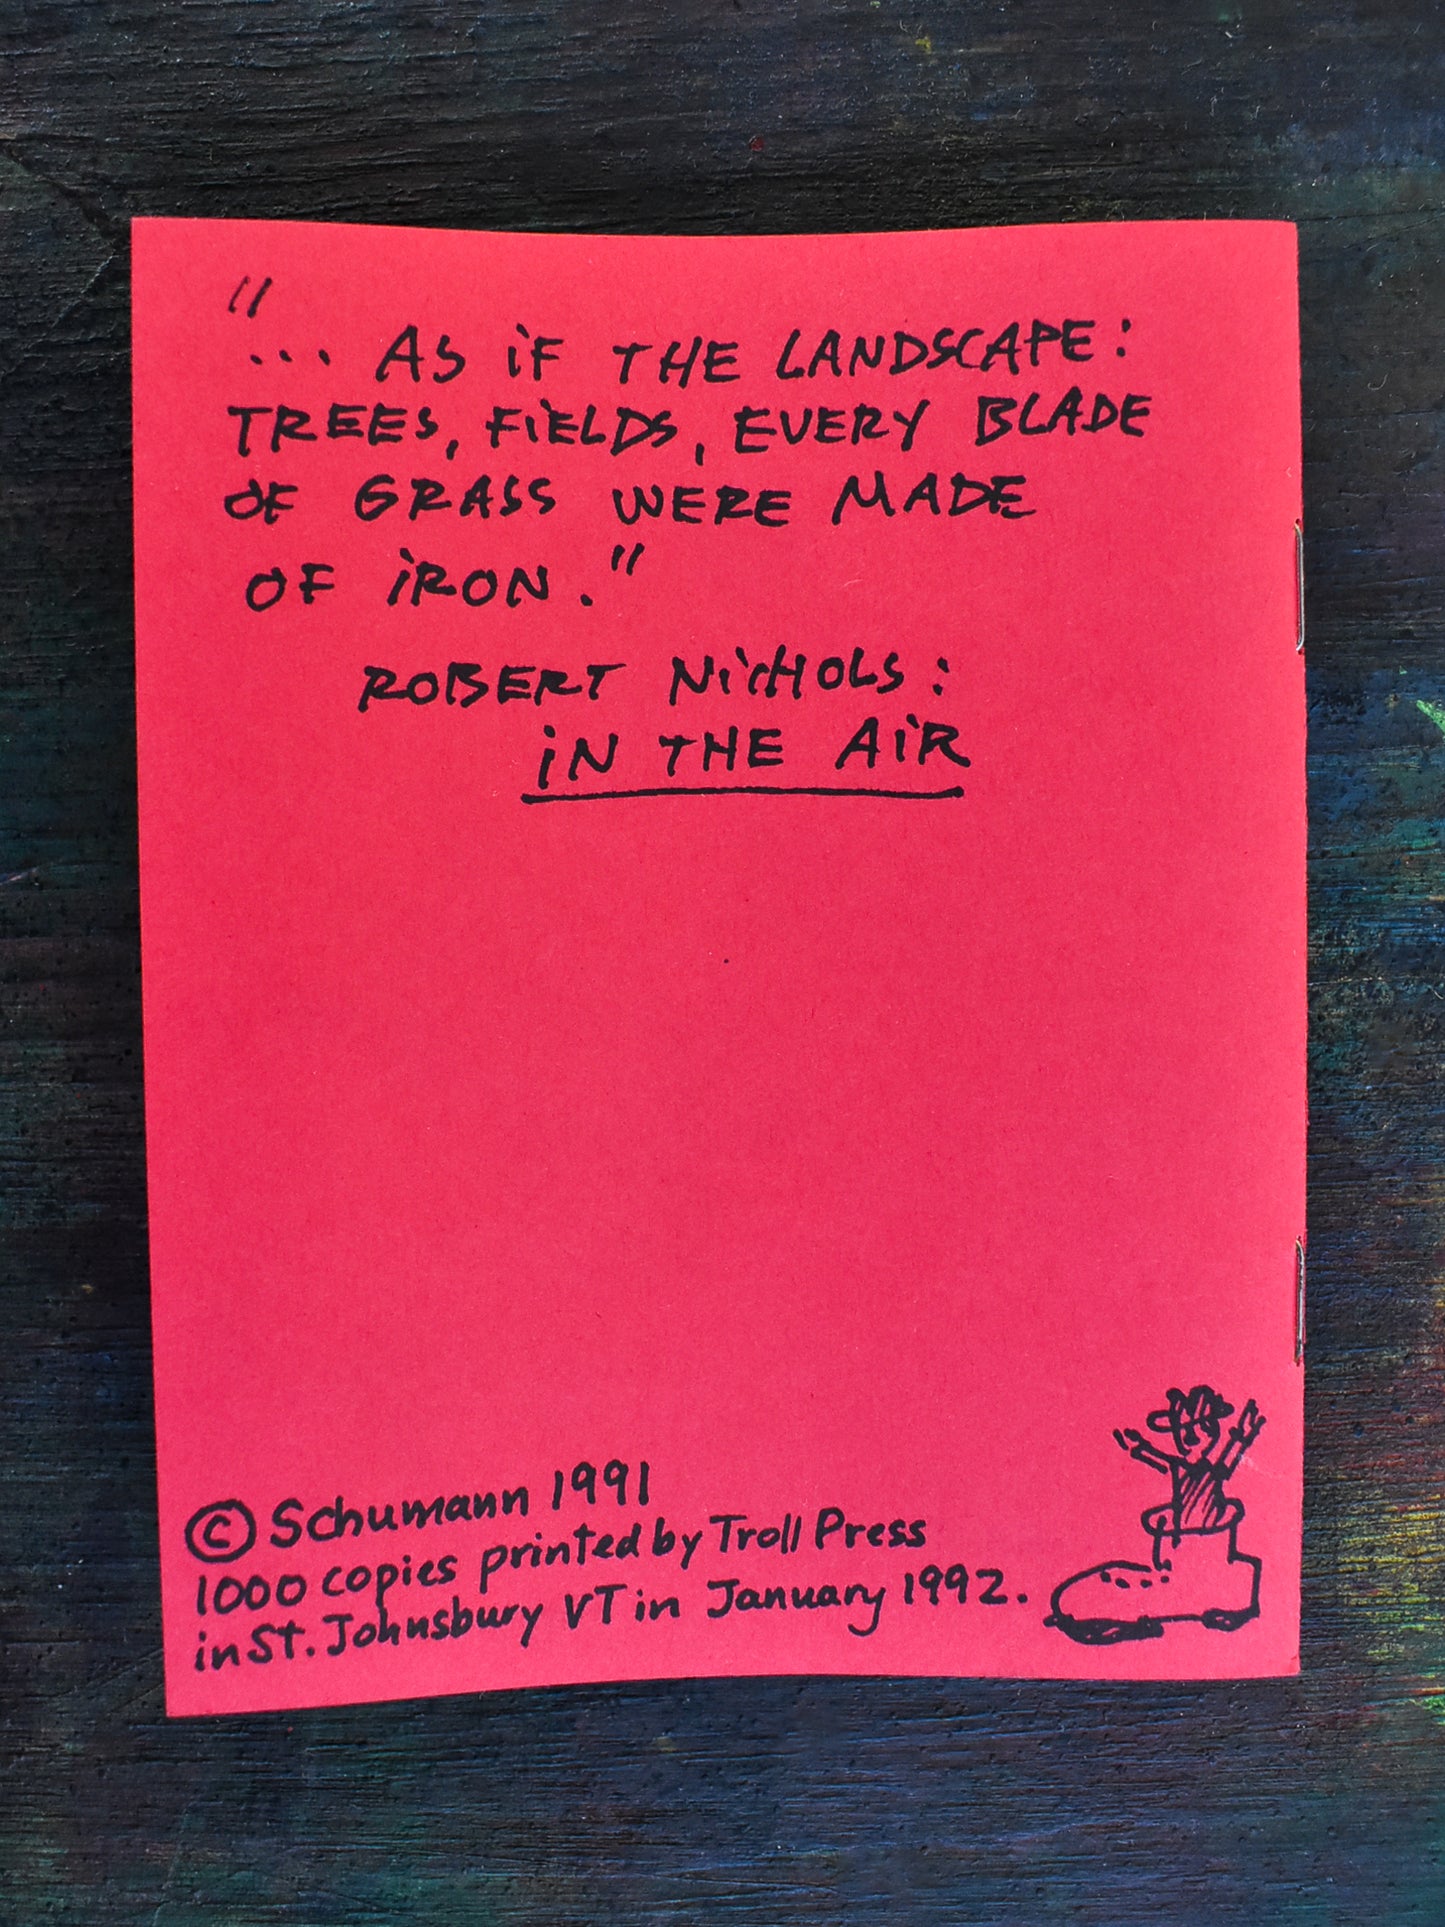 "
... AS iF THE LANDSCAPE:
TREES, FiELDS, EVERY BLADE
OF GRASS WERE MADE
OF iRON."
ROBERT NiCHOLS:
iN THE AiR
© Schumann 1991
1000 copies printed by Troll Press
in St. Johnsbury VT in January 1992.